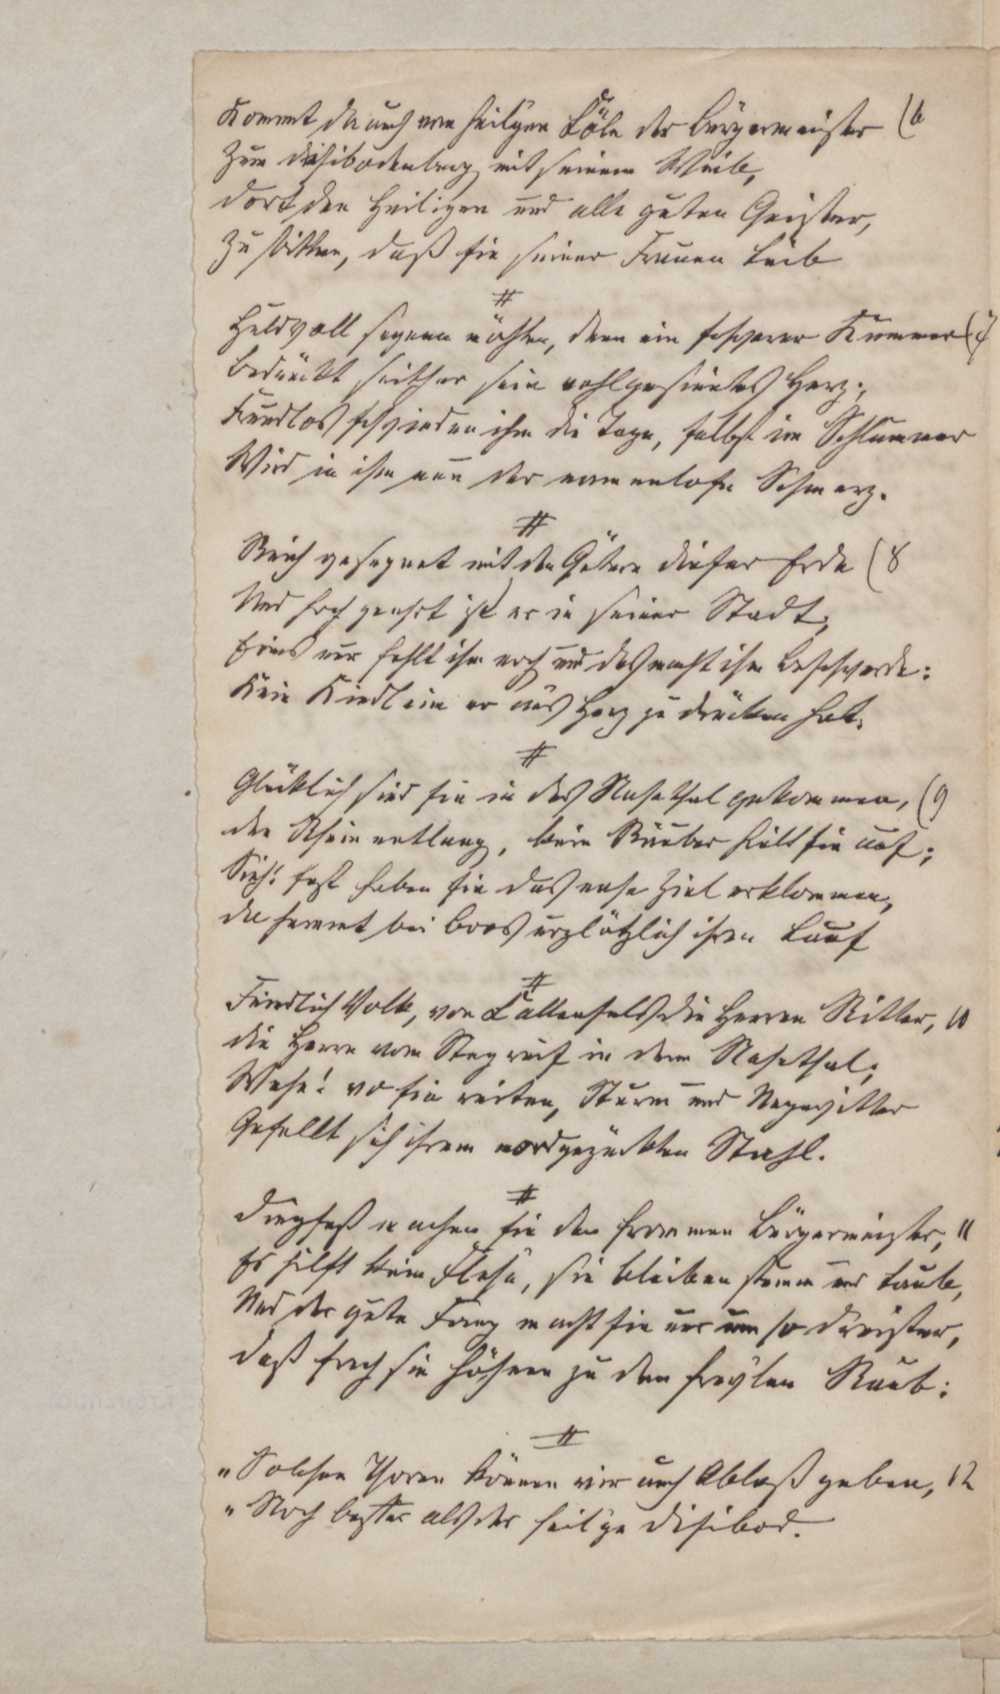 Kommt da auch vom heil'gen Köln der Bürgermeister (6
Zum Disibodenberg mit seinem Weib,
Dort den Heiligen und alle guten Geister,
Zu bitten, daß sie seiner Frauen Leib
#
Huldvoll segnen möchten, denn ein schwerer Kummer (7
Bedrückt seither sein wohlgesinntes Herz;
Freudlos schwinden ihm die Tage, selbst im Schlummer
Wird in ihm neu der namenlose Schmerz.
#
Reich gesegnet mit den Gütern dieser Erde (8
Und hoch geehrt ist er in seiner Stadt;
Eins nur fehlt ihm noch und das macht ihm Beschwerde:
Kein Kindlein er ans Herz zu drücken hat.
#
Glücklich sind sie in das Nahethal gekommen, (9
Den Rhein entlang, kein Räuber hielt sie auf;
Sieh! fast haben sie das nahe Ziel erklommen,
Da hemmt bei Boos urplötzlich ihren Lauf
#
Feindlich Volk, von Kallenfels die Herren Ritter, 10
Die Herrn vom Stegreif in dem Nahethal;
Wehe! wo sie reiten, Sturm und Ungewitter
Gesellt sich ihrem mordgezückten Stahl.
#
Dingfest machen sie den frommen Bürgermeister, 11
Es hilft kein Flehn, sie bleiben stumm und taub,
Und der gute Fang macht sie nur um so dreister,
Daß frech sie höhnen zu dem frevlen Raub:
#
„Solchen Thoren können wir auch Ablaß geben, 12
„Noch besser als der heil'ge Disibod.